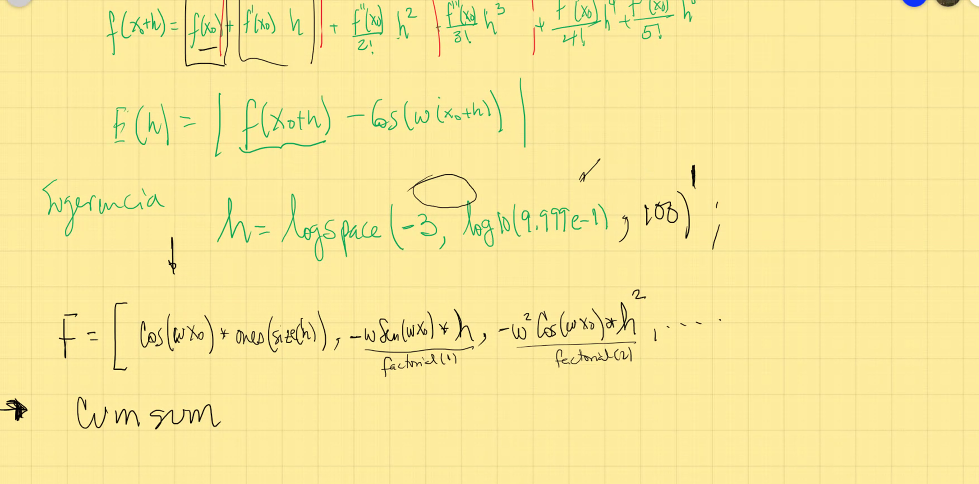 f(x₀+h) = f(x₀) + f'(x₀) h + f''(x₀)/2! h² + f'''(x₀)/3! h³ + f (x₀)/4! h⁴ + f (x₀)/5! h
E(h) = | f(x₀+h) - Cos(ω(x₀+h)) |
Sugerencia
h = logspace(-3, log10(9.999e-1), 100)' ;
F = [ Cos(ωx₀) * ones(size(h)), -ωSen(ωx₀)*h / factorial(1), -ω² Cos(ωx₀)*h² / factorial(2), .....
→ Cumsum